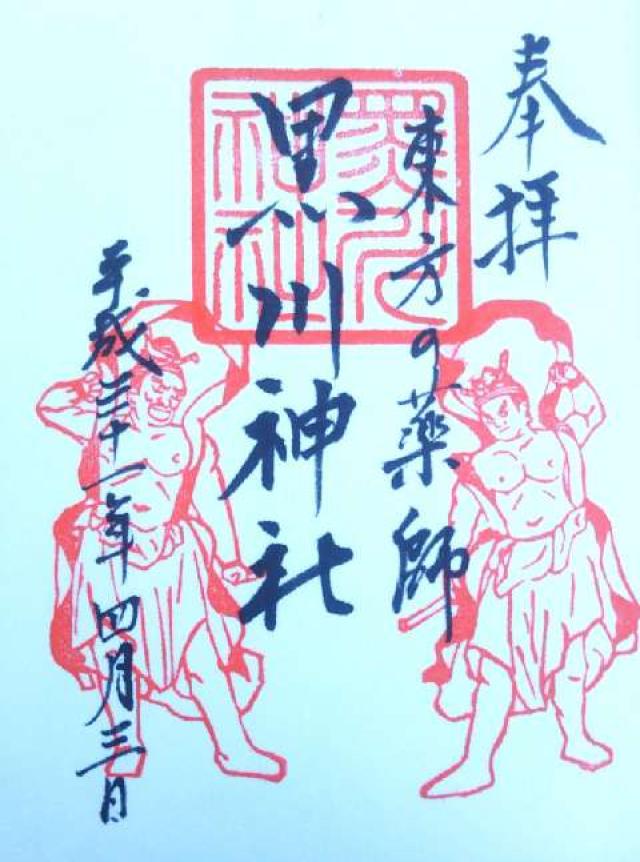 奉拝
東方の薬師
黒川神社
平成三十一年四月三日